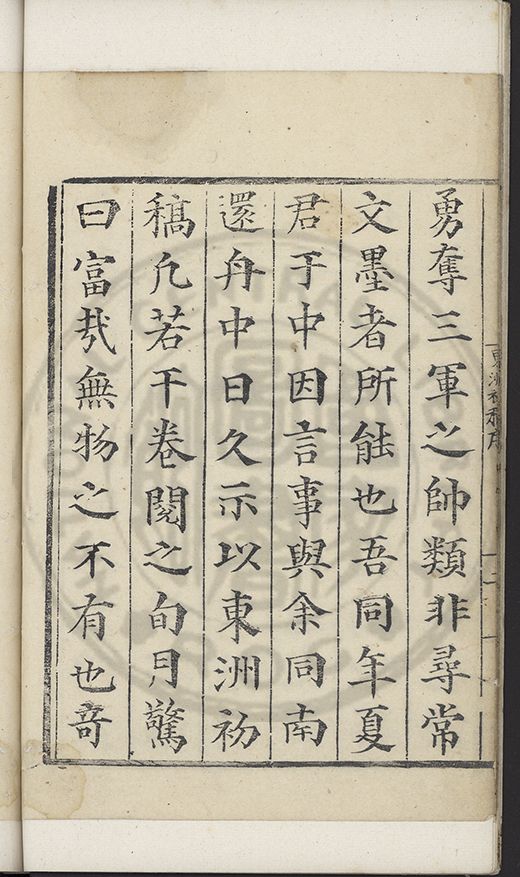 勇奪三軍之帥類非尋常
文墨者所能也吾同年夏
君于中因言事與余同南
還舟中日久示以東洲初
稿凡若干卷閱之旬月驚
曰富哉無物之不有也竒
東洲初稿序